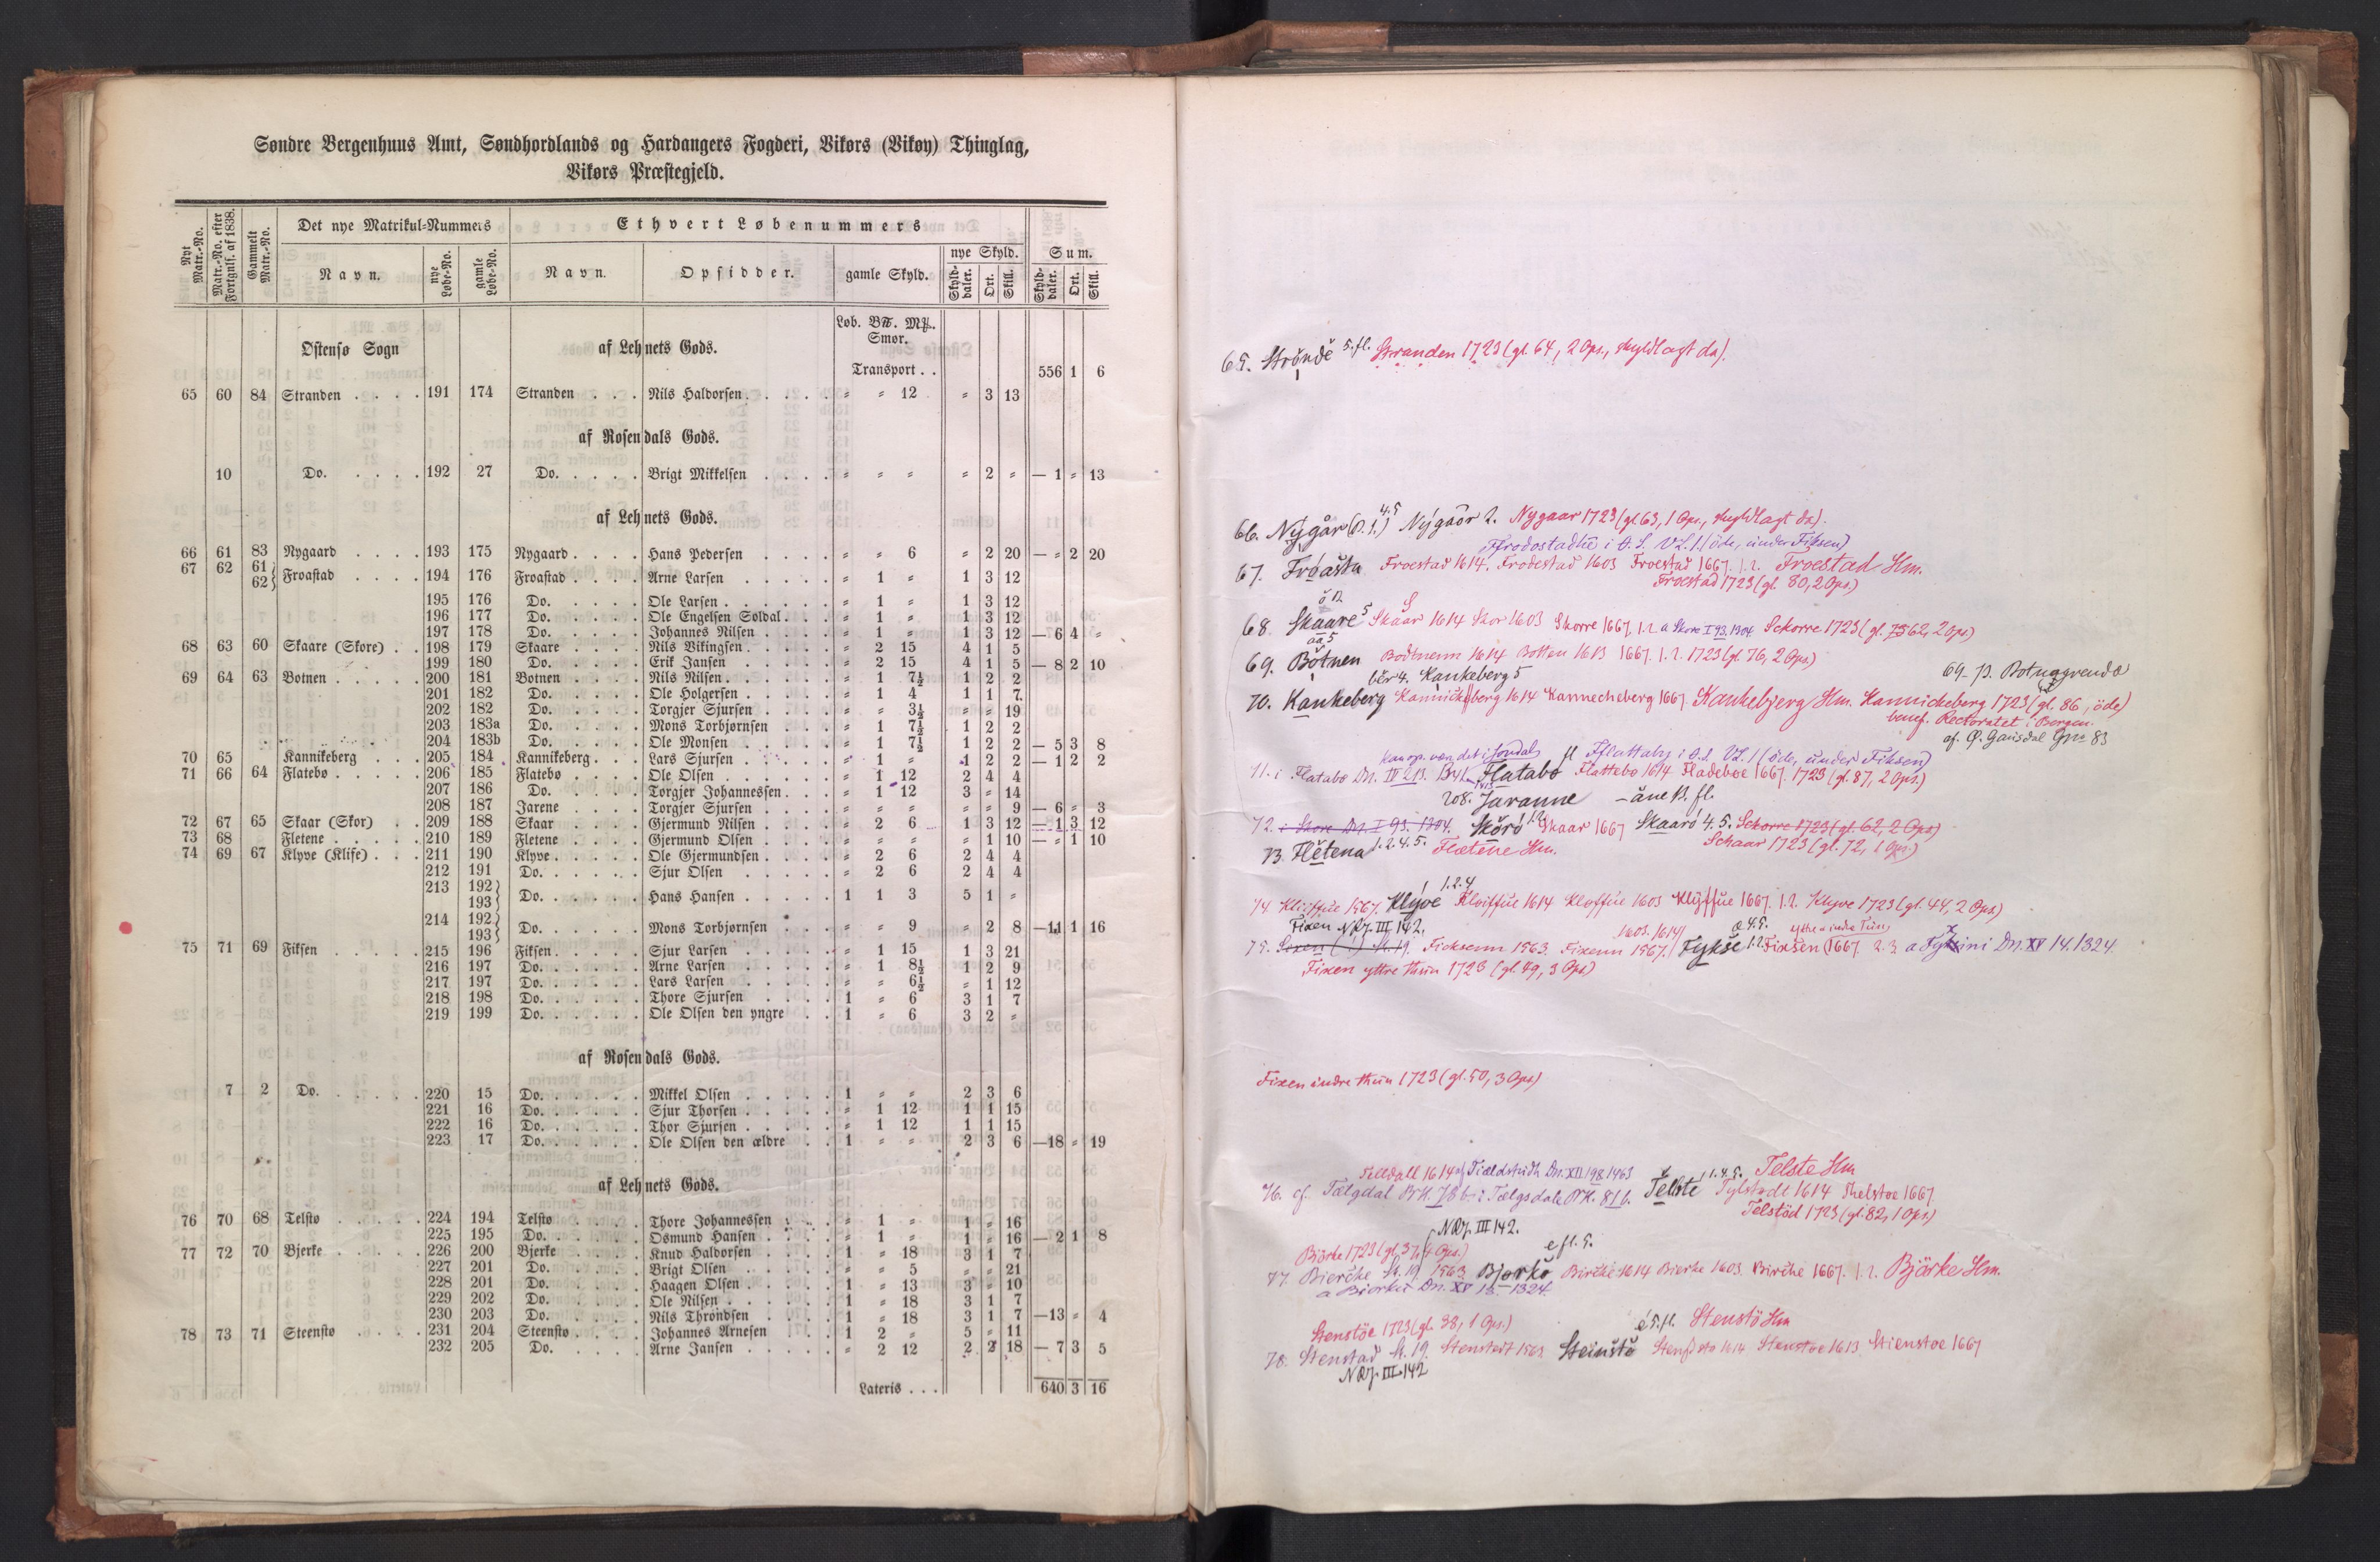 Søndre Bergenhuus Amt, Søndhordlands og Hardangers Fogderi, Vikørs (Vikøy) Thinglag,
Vikørs Præstegjeld.
Nyt Matr.-No.
Matr.-No. efter Fortgnlf. af 1838.
Gammelt Matr.-No.
Det nye Matrikul-Nummers
Ethvert Løbenummers
Navn.
nye Løbe-No.
gamle Løbe-No.
Navn.
Opsidder.
gamle Skyld.
nye Skyld.
Skyld-daler. Ort. Skill.
Sum.
Skyld-daler. Ort. Skill.
Østensø Sogn
af Lehnets Gods.
Løb. B℔. M℔. Smør.
Transport . . 556 1 6
65 60 84 Stranden . . . . 191 174 Stranden . . . Nils Haldorsen . . . . . " " 12 " 3 13
af Rosendals Gods.
10 Do. . . . . 192 27 Do. . . . . Brigt Mikkelsen . . . . " " " " 2 " — 1 " 13
af Lehnets Gods.
66 61 83 Nygaard . . . . 193 175 Nygaard . . . . Hans Pedersen . . . . " " 6 " 2 20 — " 2 20
67 62 61 62 } Froastad . . . . 194 176 Froastad . . . . Arne Larsen . . . . . " 1 " 1 3 12
195 176 Do. . . . . Ole Larsen . . . . . . " 1 " 1 3 12
196 177 Do. . . . . Ole Engelsen Søldal . . " 1 " 1 3 12
197 178 Do. . . . . Johannes Nilsen . . . . " 1 " 1 3 12 — 6 4 "
68 63 60 Skaare (Skore) . . 198 179 Skaare . . . . Nils Vikingsen . . . . . " 2 15 4 1 5
199 180 Do. . . . . Erik Jansen . . . . . " 2 15 4 1 5 — 8 2 10
69 64 63 Botnen . . . . . 200 181 Botnen . . . . Nils Nilsen . . . . . . " 1 7½ 1 2 2
201 182 Do. . . . . Ole Holgersen . . . . . " 1 4 1 1 7
202 182 Do. . . . . Torgjer Sjursen . . . . " " 3½ " " 19
203 183a Do. . . . . Mons Torbjørnsen . . . " 1 7½ 1 2 2
204 183b Do. . . . . Ole Monsen . . . . . " 1 7½ 1 2 2 — 5 3 8
70 65 Kannikeberg . . . 205 184 Kannikeberg . . . Lars Sjursen . . . . . " 1 " 1 2 2 — 1 2 2
71 66 64 Flatebø . . . . . 206 185 Flatebø . . . . Ole Olsen . . . . . . " 1 12 2 4 4
207 186 Do. . . . . Torgjer Johannessen . . . " 1 12 3 " 14
208 187 Jarene . . . . Torgjer Sjursen . . . . " " " " " 9 — 6 " 3
72 67 65 Skaar (Skor) . . 209 188 Skaar . . . . Gjermund Nilsen . . . . " 2 6 1 3 12 — 1 3 12
73 68 Fletene . . . . . 210 189 Fletene . . . . Gjermund Olsen . . . . " " " " 1 10 — " 1 10
74 69 67 Klyve (Klife) . . . 211 190 Klyve . . . . . Ole Gjermundsen . . . . " 2 6 2 4 4
212 191 Do. . . . . . Sjur Olsen . . . . . " 2 6 2 4 4
213 192 193 } Do. . . . . . Hans Hansen . . . . . 1 1 3 5 1 "
214 192 193 } Do. . . . . . Mons Torbjørnsen . . . " " 9 " 2 8 — 11 1 16
75 71 69 Fiksen . . . . . 215 196 Fiksen . . . . . Sjur Larsen . . . . . " 1 15 1 3 21
216 197 Do. . . . . . Arne Larsen . . . . . " 1 8½ 1 2 9
217 197 Do. . . . . . Lars Larsen . . . . . " " 6½ " 1 12
218 198 Do. . . . . . Thore Sjursen . . . . 1 " 6 3 1 7
219 199 Do. . . . . . Ole Olsen den yngre . . 1 " 6 3 2 "
af Rosendals Gods.
7 2 Do. . . . . . 220 15 Do. . . . . . Mikkel Olsen . . . . . 1 " " 2 3 6
221 16 Do. . . . . . Sjur Thorsen . . . . . " 1 12 1 1 15
222 16 Do. . . . . . Thor Sjursen . . . . . " 1 12 1 1 15
223 17 Do. . . . . . Ole Olsen den ældre . . 1 " " 2 3 6 — 18 " 19
af Lehnets Gods.
76 70 68 Telstø . . . . . 224 194 Telstø . . . . Thore Johannessen . . . " 1 " 1 " 16
225 195 Do. . . . . Osmund Hansen . . . . " 1 " 1 " 16 — 2 1 8
77 72 70 Bjerke . . . . . 226 200 Bjerke . . . . Knud Haldorsen . . . . 1 " 18 3 1 7
227 201 Do. . . . . Brigt Olsen . . . . . " " 5 " " 21
228 201 Do. . . . . Haagen Olsen . . . . . 1 " 13 3 " 10
229 202 Do. . . . . Ole Nilsen . . . . . . 1 " 18 3 1 7
230 203 Do. . . . . Nils Throndsen . . . . 1 " 18 3 1 7 — 13 " 4
78 73 71 Steenstø . . . . 231 204 Steenstø . . . . Johannes Arnesen . . . 1 2 " 5 " 11
232 205 Do. . . . . Arne Jansen . . . . . " 2 12 2 2 18 — 7 3 5
Lateris . . . 640 3 16
65. Strånde 5. fl. Stranden 1723 (gl. 64, 2 Ops., skyldlagt da).
66. Nýgår (D. 1.) 4.5 Nýgaor 2. Nygaar 1723 (gl. 63, 1 Ops., skyldlagt da).
Ffrodostadhe i A. S. VL. 1. (öde, under Fiksen)
67. Froasta Froestad 1614. Frodestad 1603 Froestad 1667. 1. 2. Froestad Hm.
Froestad 1723 (gl. 80, 2 Ops.)
68. Skaare 5 Skaar 1614 Skor 1603 Skorre 1667. 1. 2. a Skore I 93, 1304 Schorre 1723 (gl. 62, 2 Ops)
69. Botnen Bodtnenn 1614 Botten 1613 1667. 1. 2. 1723 (gl. 76, 2 Ops)
69 - B. Botnagrendæ
bër 4. Kankeberg 5
70. Kankeberg Kannickeberg 1614 Kannecheberg 1667. Kankebjerg Hm. Kannickeberg 1723 (gl. 86, öde)
benef. Rectoratet i Bergen.
af. Q. Gausdal Gno 83
Kan op. van det i Jondal Fflattaby i A. S. VL. 1 (öde, under Fiksen)
71. i Flatabø Dn. IV 213. 1341 Flatabø Flattebo 1614 Fladeboe 1667. 1723 (gl. 87, 2 Ops.)
208. Jaranne - äne B. fl.
72. i Skore Dn. I 93. 1304. Skårå 1.2. Skaar 1667 Skaarö 4. 5. Schorre 1723 (gl. 62, 2 Ops)
Schaar 1723 (gl. 72, 1 Ops.)
73. Flëtena 1. 2. 4. 5. Flætene Hm.
74 Kliffue 1567. Klyve 1. 2. 4 Kloiffue 1614 Kloffue 1603 Klyffue 1667. 1. 2. Klyve 1723 (gl. 44, 2 Ops)
Fixen NRJ. III 142. 1603. 1614 æ 4. 5. ythe - indre Tun
75. Ficksenn 1563. Fixenn 1567. Fykse 1. 2. Fixsen (1667. 2. 3. a Fyxini Dn. XV 14. 1324.
Fixen yttre thun 1723 (gl. 49, 3 Ops)
Fixen indre thun 1723 (gl. 50, 3 Ops)
Telldall 1614 Dn. XII 198. 1463 Telste 1. 4. 5. Telste Hm
76. cf. Tælgdal BK. 78 b i Tælgsdale BK. 81 b. Tylstadt 1614 Thelstoe 1667.
Telstöd 1723 (gl. 82, 1 Ops)
NRJ. III 142.
Biörke 1723 (gl. 37, 4 Ops.) e fl. 5.
77. Bierche St. 19 1563 Bjorkö Birche 1614 Bierke 1603. Birche 1667. 1. 2. Björke Hm.
a Biorku Dn. XV 13. 1324.
Stenstöe 1723 (gl. 38, 1 Ops.) Stenstö Hm
78. Stenstad St. 19 Stenstedt 1563 Steinstö 1614 Stenstoe 1613. Stienstoe 1667
NRJ. III 142